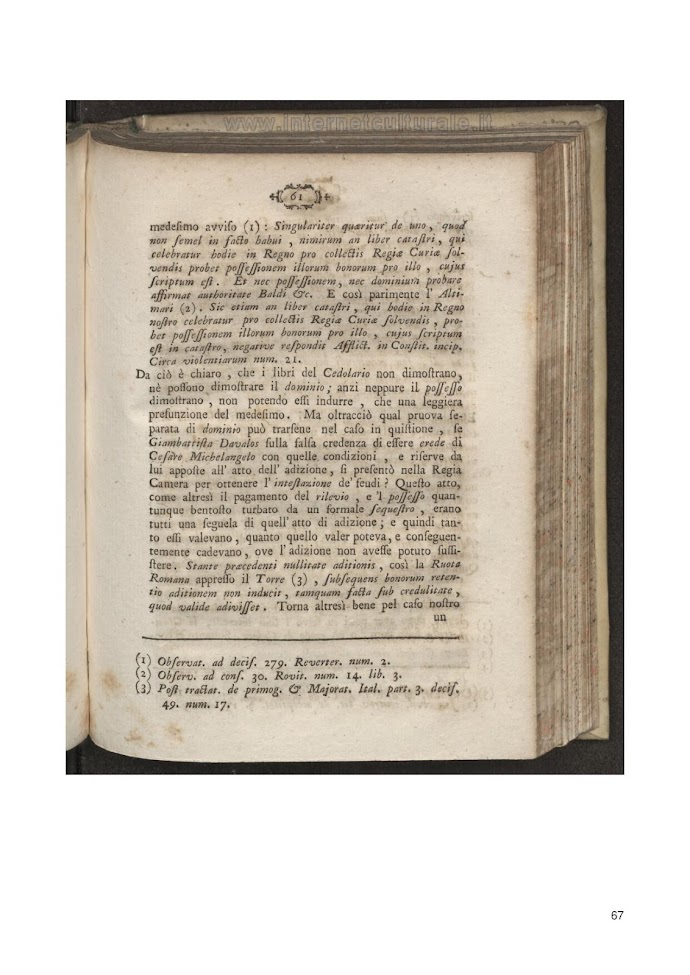 www.internetculturale.it
61
medeſimo avviſo (1) : Singulariter quæritur de uno, quod
non ſemel in facto habui, nimirum an liber cataſtri, qui
celebratur hodie in Regno pro collectis Regiæ Curiæ ſol-
vendis probet poſſeſſionem illorum bonorum pro illo, cujus
ſcriptum eſt. Et nec poſſeſſionem, nec dominium probare
affirmat authoritate Baldi &c. E così parimente l' Alti-
mari (2). Sic etiam an liber cataſtri, qui hodie in Regno
noſtro celebratur pro collectis Regiæ Curiæ ſolvendis, pro-
bet poſſeſſionem illorum bonorum pro illo, cujus ſcriptum
eſt in cataſtro, negative reſpondit Afflict. in Conſtit. incip.
Circa violentiarum num. 21.
Da ciò è chiaro, che i libri del Cedolario non dimoſtrano,
nè poſſono dimoſtrare il dominio; anzi neppure il poſſeſſo
dimoſtrano, non potendo eſſi indurre, che una leggiera
preſunzione del medeſimo. Ma oltracciò qual pruova ſe-
parata di dominio può trarſene nel caſo in quiſtione, ſe
Giambattiſta Davalos ſulla falſa credenza di eſſere erede di
Ceſare Michelangelo con quelle condizioni, e riſerve da
lui appoſte all' atto dell' adizione, ſi preſentò nella Regia
Camera per ottenere l' inteſtazione de' feudi? Queſto atto,
come altresì il pagamento del rilevio, e 'l poſſeſſo quan-
tunque bentoſto turbato da un formale ſequeſtro, erano
tutti una ſeguela di quell' atto di adizione; e quindi tan-
to eſſi valevano, quanto quello valer poteva, e conſeguen-
temente cadevano, ove l' adizione non aveſſe potuto ſuſſi-
ſtere. Stante præcedenti nullitate aditionis, così la Ruota
Romana appreſſo il Torre (3), ſubſequens bonorum reten-
tio aditionem non inducit, tamquam facta ſub credulitate,
quod valide adiviſſet. Torna altresì bene pel caſo noſtro
un
(1) Obſervat. ad deciſ. 279. Reverter. num. 2.
(2) Obſerv. ad conſ. 30. Rovit. num. 14. lib. 3.
(3) Poſt tractat. de primog. & Majorat. Ital. part. 3. deciſ.
49. num. 17.
67